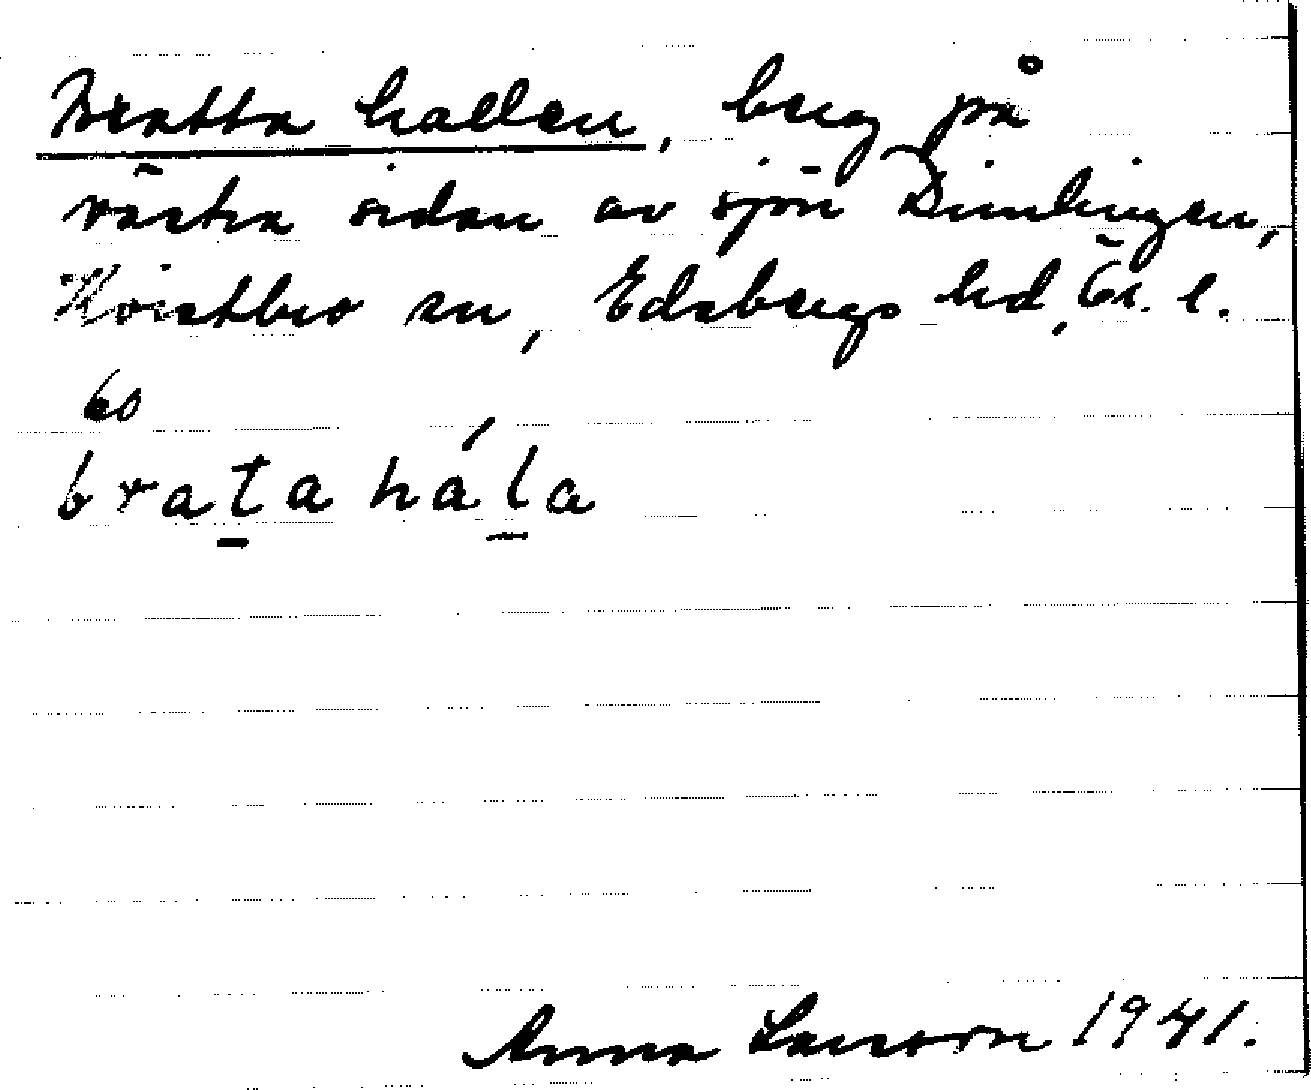 Bratta hallen, berg på
västra sidan av sjön Dimlingen,
Kvistbro sn, Edsbergs hd, Ör. l.
60
brata hála
Anna Larsson 1941.